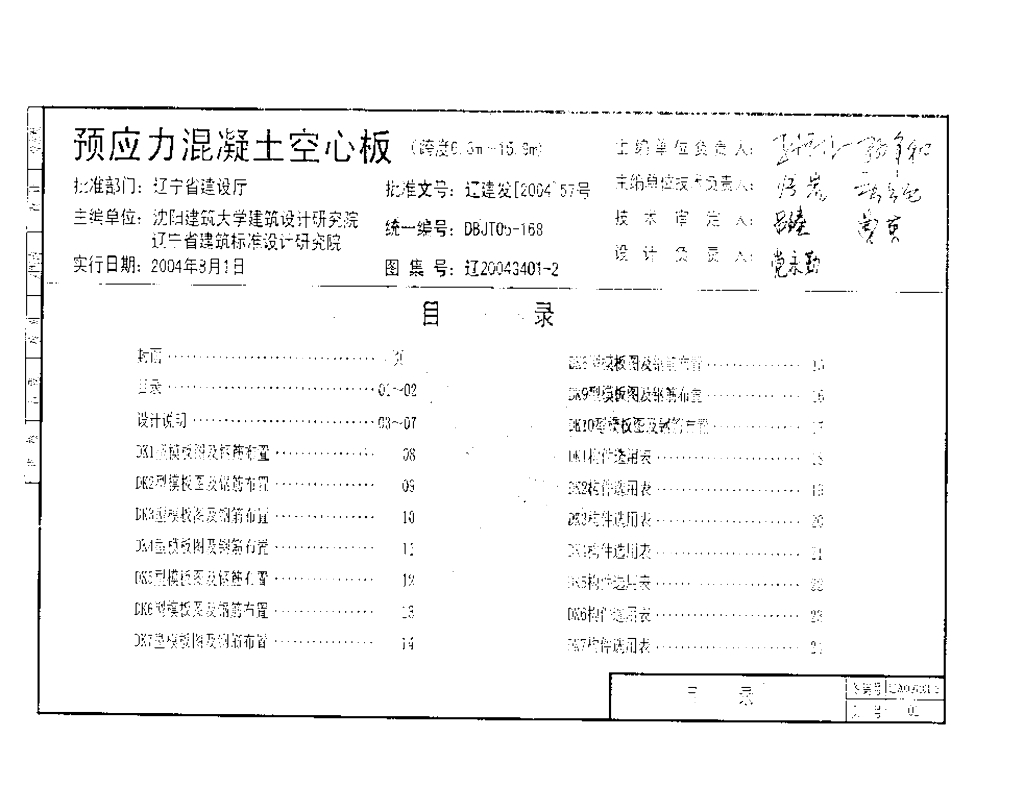 预应力混凝土空心板
批准部门：辽宁省建设厅
主编单位：沈阳建筑大学建筑设计研究院
辽宁省建筑标准设计研究院
实行日期：2004年8月1日
批准文号：辽建发[2004]57号
统一编号：DBJT05-168
图 集 号：辽2004G401-2
主编单位负责人：
主编单位技术负责人：
技术审定人：
设计负责人：
目 录
封面 页
目录 01~02
设计说明 03~07
DK1型模板图及钢筋布置 08
DK2型模板图及钢筋布置 09
DK3型模板图及钢筋布置 10
DK4型模板图及钢筋布置 11
DK5型模板图及钢筋布置 12
DK6型模板图及钢筋布置 13
DK7型模板图及钢筋布置 14
DK8型模板图及钢筋布置 15
DK9型模板图及钢筋布置 16
DK10型模板图及钢筋布置 17
DK1构件选用表 18
DK2构件选用表 19
DK3构件选用表 20
DK4构件选用表 21
DK5构件选用表 22
DK6构件选用表 23
DK7构件选用表 24
目 录
图集号
页 号 01